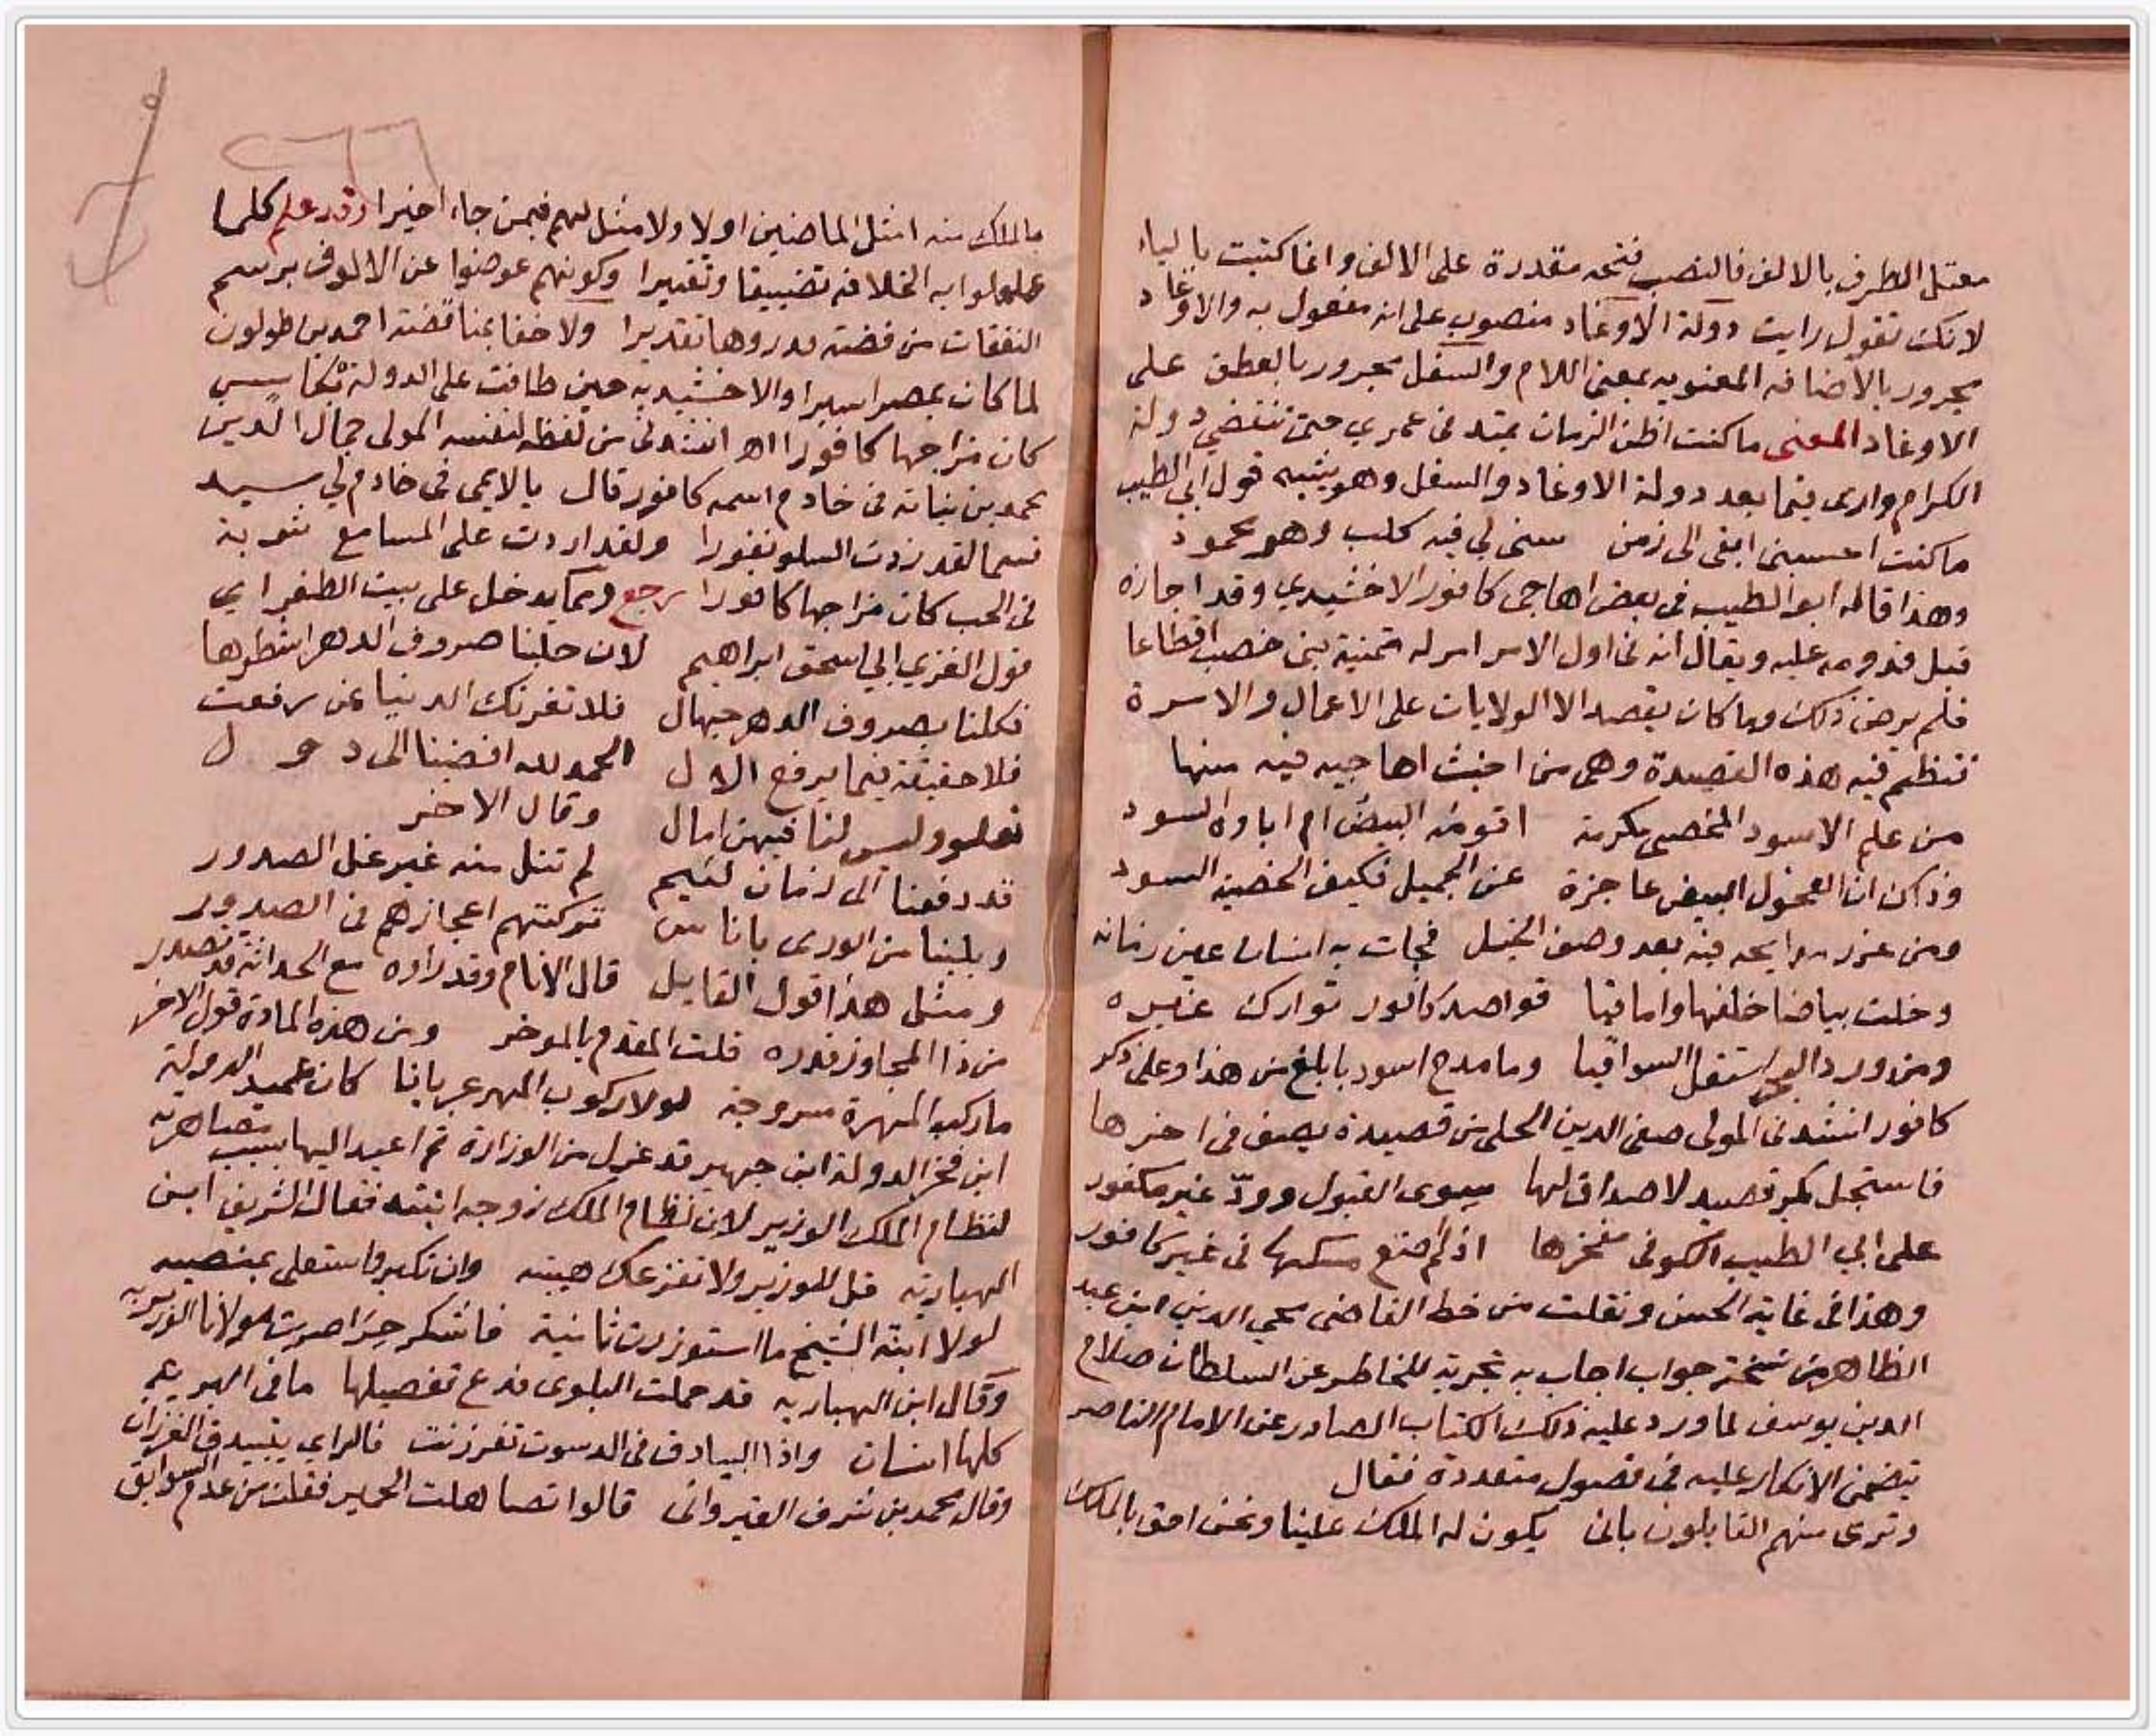 معتل الطرف بالالف فالنصب فتحه مقدرة على الالف وانما كتبت بالياء
لانك تقول رايت دولة الاوغاد منصوب على انه مفعول به والاوغاد
مجرور بالاضافه المعنويه بمعنى اللام والسفل مجرور بالعطف على
الاوغاد المعنى ما كنت اظن الزمان يمتد فى عمري حتى تنقضي دولة
الكرام وارى فيما بعد دولة الاوغاد والسفل وهو يشبه قول ابي الطيب
ما كنت احسبنى ابقى الى زمن سئى لي فيه كلب وهو محمود
وهذا قاله ابو الطيب فى بعض اهاجى كافور الاخشيدي وقد اجازه
قبل قدومه عليه ويقال انه فى اول الامر امر له بمنية بنى خصب اقطاعا
فلم يرض ذلك وما كان يقصد الا الولايات على الاعمال والاسرة
تنظم فيه هذه القصيدة وهى من اخبث اهاجيه فيه منها
من علم الاسود المخصى مكرمة اقومه البيض ام اباوه السود
وذاك ان الفحول البيض عاجزة عن الجميل فكيف الخصية السود
ومن غرر مدايحه فيه بعد وصف الخيل فجات به انسان عين زمانه
وخلت بياضا خلفها واماقيا قواصد كافور توارك غيره
ومن ورد البحر استقل السواقيا وما مدح اسود بابلغ من هذا وعلى ذكر
كافور انشدنى المولى صفى الدين الحلى من قصيدة يصف فى اخرها
فاستجل بكر قصيد لا صداق لها سوى القبول وودّ غير مكفور
على ابي الطيب الكوفى مفخرها اذ لم اضع مسكها فى غير كافور
وهذا فى غاية الحسن ونقلت من خط القاضى محي الدين ابن عبد
الظاهر من نسخة جواب اجاب به تجربة للخاطر عن السلطان صلاح
الدين يوسف لما ورد عليه ذلك الكتاب الصادر عن الامام الناصر
يتضمن الانكار عليه فى فصول متعددة فقال
وترى منهم القايلون بانى يكون له الملك علينا ونحن احق بالملك
بالملك منه امثل الماضين اولا ولا مثل لهم فيمن جاء اخيرا وقد علم كلما
عاملوا به الخلافه تضييقا وتقتيرا وكونهم عوضوا عن الالوف برسم
النفقات من فضته قدروها تقديرا ولا خفا بمناقضته احمد بن طولون
لما كان بمصر اميرا والاخشيديه حين طافت على الدولة بكاس
كان مزاجها كافورا اهـ انشدنى من لفظه لنفسه المولى جمال الدين
محمد بن نباته فى خادم اسمه كافور قال يا لايمى فى خادم لي سيد
قسما لقد زدت السلو نفورا ولقد اردت على المسامع شوبة
فى الحب كان مزاجها كافورا رجع ومما يدخل على بيت الطغراي
قول الغزي ابي اسحق ابراهيم لان حلبنا صروف الدهر اشطرها
فكلنا بصروف الدهر جهال فلا تغرنك الدنيا بمن رفعت
فلا حقيقة فيما يرفع الال الحمد لله افضينا الى دول
تعلو وليس لنا فيهن امال وقال الاخر
قد دفعنا الى زمان لئيم لم تنل منه غير غل الصدور
وبلينا من الورى باناس تركتهم اعجازهم فى الصدور
ومثل هذا قول القايل قال الانام وقد راوه مع الحداثة قد تصدر
من ذا المجاوز قدره قلت المقدم بالموخر ومن هذه المادة قول الاخر
ما ركب المهرة مسروجة لولا ركوب المهر عريانا كان عميد الدولة
ابن فخر الدولة ابن جهير قد عزل من الوزارة ثم اعيد اليها بسبب مصاهرته
لنظام الملك الوزير لان نظام الملك زوجه ابنته فقال الشريف ابن
الهباريه قل للوزير ولا تفزعك هيبته وان تكبر واستعلى بمنصبه
لولا ابنة الشيخ ما استوزرت ثانية فاشكر حرا صرت مولانا الوزير به
وقال ابن الهباريه قد حملت البلوى فدع تفصيلها ما فى البرية
كلها انسان واذا البيادق فى الدسوت تفرزنت فالراى يتبيدق الفرزان
وقال محمد بن شرف القيروانى قالوا تصاهلت الحمير فقلت من عدم السوابق